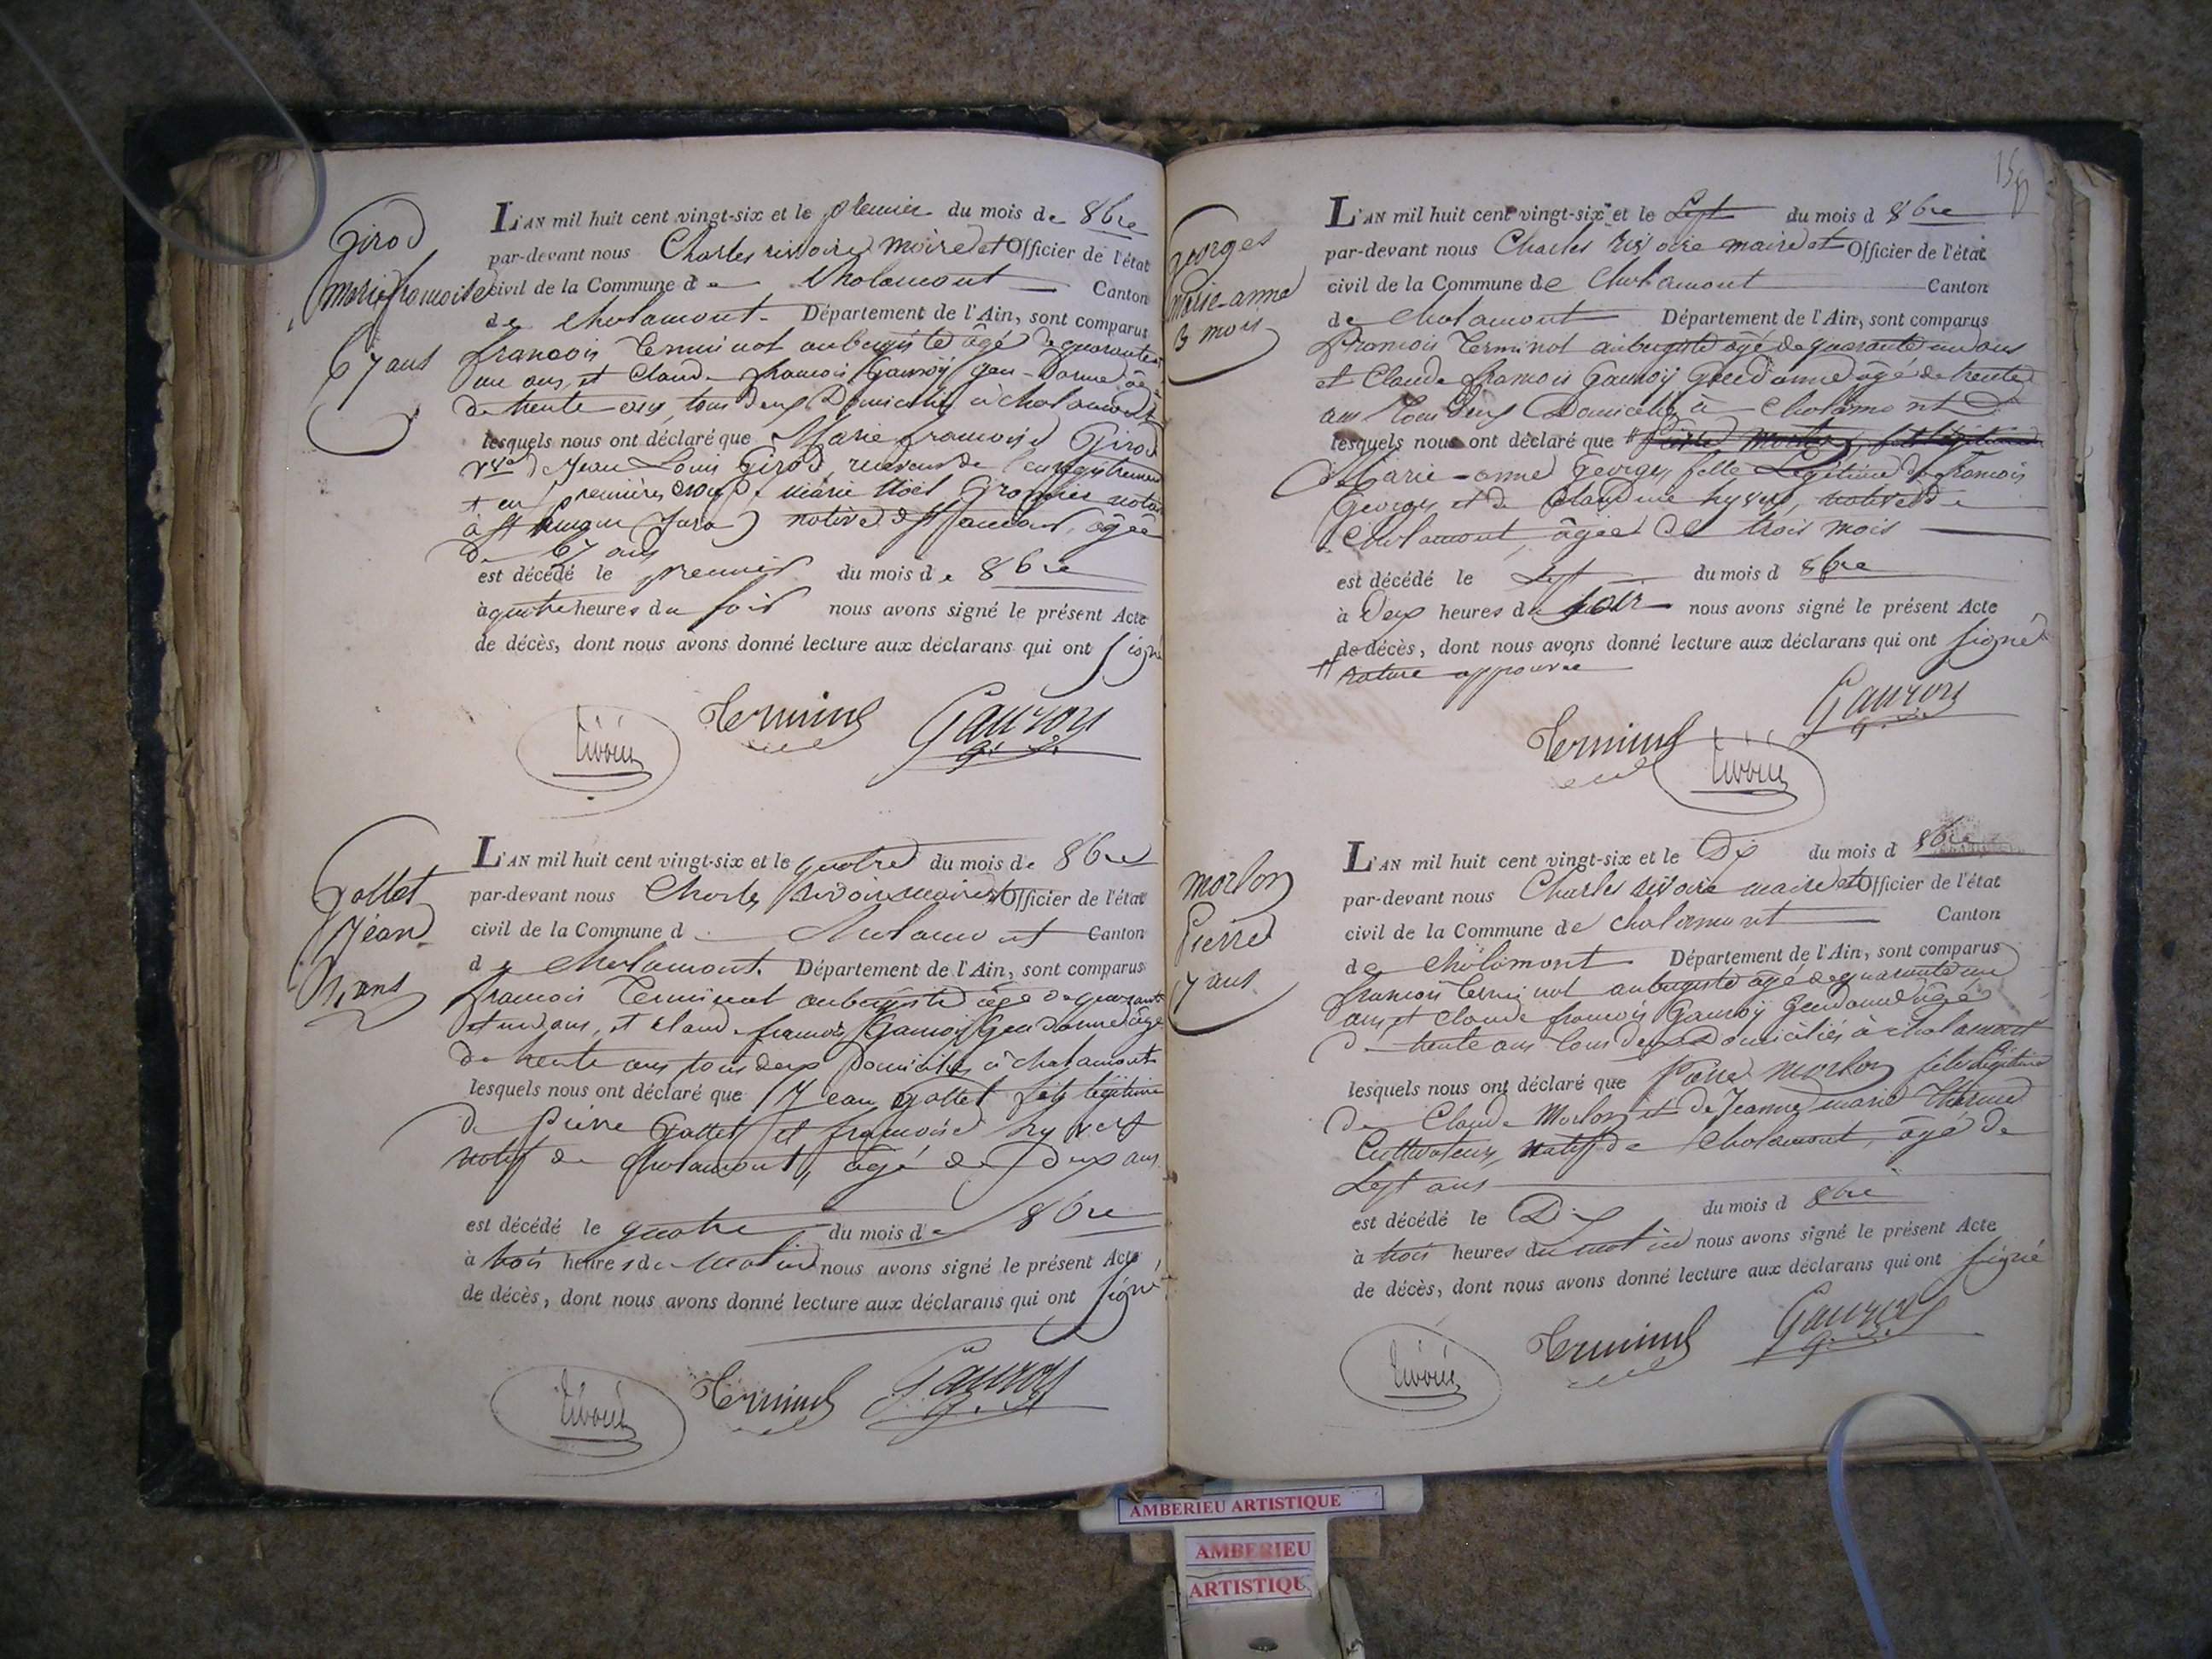 Girod
Marie françoise
67 ans
L'AN mil huit cent vingt-six et le premier du mois de 8bre
par-devant nous Charles rivoire maire et Officier de l'état
civil de la Commune de Chalamont Canton
de Chalamont Département de l'Ain, sont comparus
françois Terminot aubergiste âgé de quarante
un ans, et Claude françois Gauroÿ gen-darme âgé
de trente ans, tous deux Domiciliés à chalamont
lesquels nous ont déclaré que Marie françoise Girod
Vve de Jean Louis Girod, receveur de l'enregistrement
en premières de Marie Noël notaire
à st (Jura) native de st amour, âgée
de 67 ans
est décédé le premier du mois de 8bre
à quatre heures du soir nous avons signé le présent Acte
de décès, dont nous avons donné lecture aux déclarans qui ont signé
rivoire Terminot Gauroy
Gallet
Jean
2 ans
L'AN mil huit cent vingt-six et le quatre du mois de 8bre
par-devant nous Charles rivoire maire et Officier de l'état
civil de la Commune d Chalamont Canton
de Chalamont. Département de l'Ain, sont comparus
françois Terminot aubergiste âgé de quarante
et un ans, et claude françois Gauroÿ Gendarme âgé
de trente ans tous deux Domiciliés à chalamont
lesquels nous ont déclaré que Jean Gallet fils légitime
de Pierre Gallet et françoise hyvert
natif de Chalamont, âgé de deux ans
est décédé le quatre du mois de 8bre
à trois heures du matin nous avons signé le présent Acte
de décès, dont nous avons donné lecture aux déclarans qui ont signé
rivoire Terminot Gauroy
150
Georges
Marie-anne
3 mois
L'AN mil huit cent vingt-six et le Sept du mois d 8bre
par-devant nous Charles rivoire maire et Officier de l'état
civil de la Commune de Chalamont Canton
de Chalamont Département de l'Ain, sont comparus
françois Terminot aubergiste âgé de quarante un ans
et Claude françois Gauroÿ Gendarme âgé de trente
ans tous deux Domiciliés à Chalamont
lesquels nous ont déclaré que # Pierre Morlon, fils légitime
Marie-anne Georges, fille Légitime de françois
Georges, et de Claudine hyvert, native de
Chalamont, âgée de trois mois
est décédé le Sept du mois d 8bre
à Deux heures du soir nous avons signé le présent Acte
de décès, dont nous avons donné lecture aux déclarans qui ont signé
# rature approuvée
Terminot rivoire Gauroy
morlon
Pierre
7 ans
L'AN mil huit cent vingt-six et le Dix du mois d 8bre
par-devant nous Charles rivoire maire et Officier de l'état
civil de la Commune de chalamont Canton
de chalamont Département de l'Ain, sont comparus
françois Terminot aubergiste âgé de quarante un
ans et Claude françois Gauroÿ Gendarme âgé
de trente ans tous deux Domiciliés à chalamont
lesquels nous ont déclaré que Pierre Morlon fils légitime
De Claude Morlon et de Jeanne marie
Cultivateurs, natif de Chalamont, âgé de
Sept ans
est décédé le Dix du mois d 8bre
à trois heures du matin nous avons signé le présent Acte
de décès, dont nous avons donné lecture aux déclarans qui ont signé
rivoire Terminot Gauroy
AMBERIEU ARTISTIQUE
AMBERIEU
ARTISTIQU